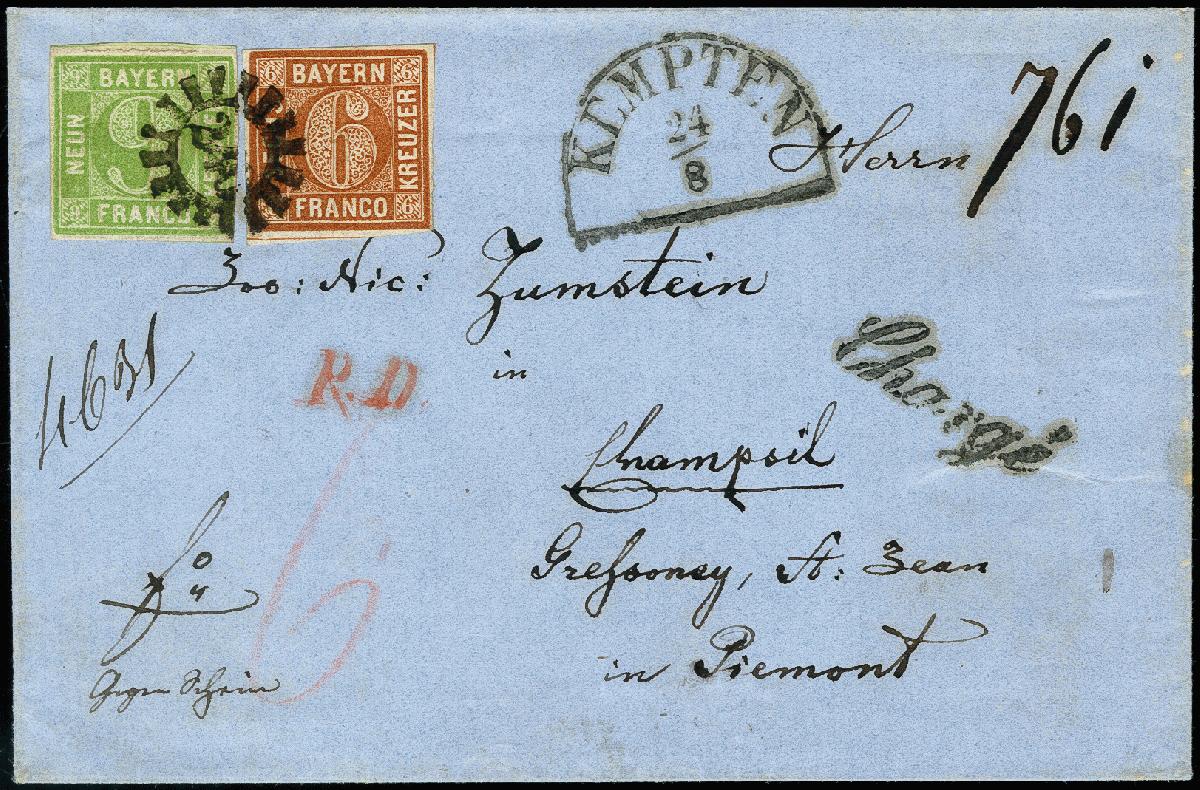 BAYERN
NEUN
9
FRANCO
6 BAYERN 6
6
KREUZER
FRANCO 6
KEMPTEN
24
8
761
Herrn
Joo: Nic: Zumstein
in
Champsil
Greſsoney, St: Jean
in Piemont
Chargé
R.D.
4631
6
Gegen Schein